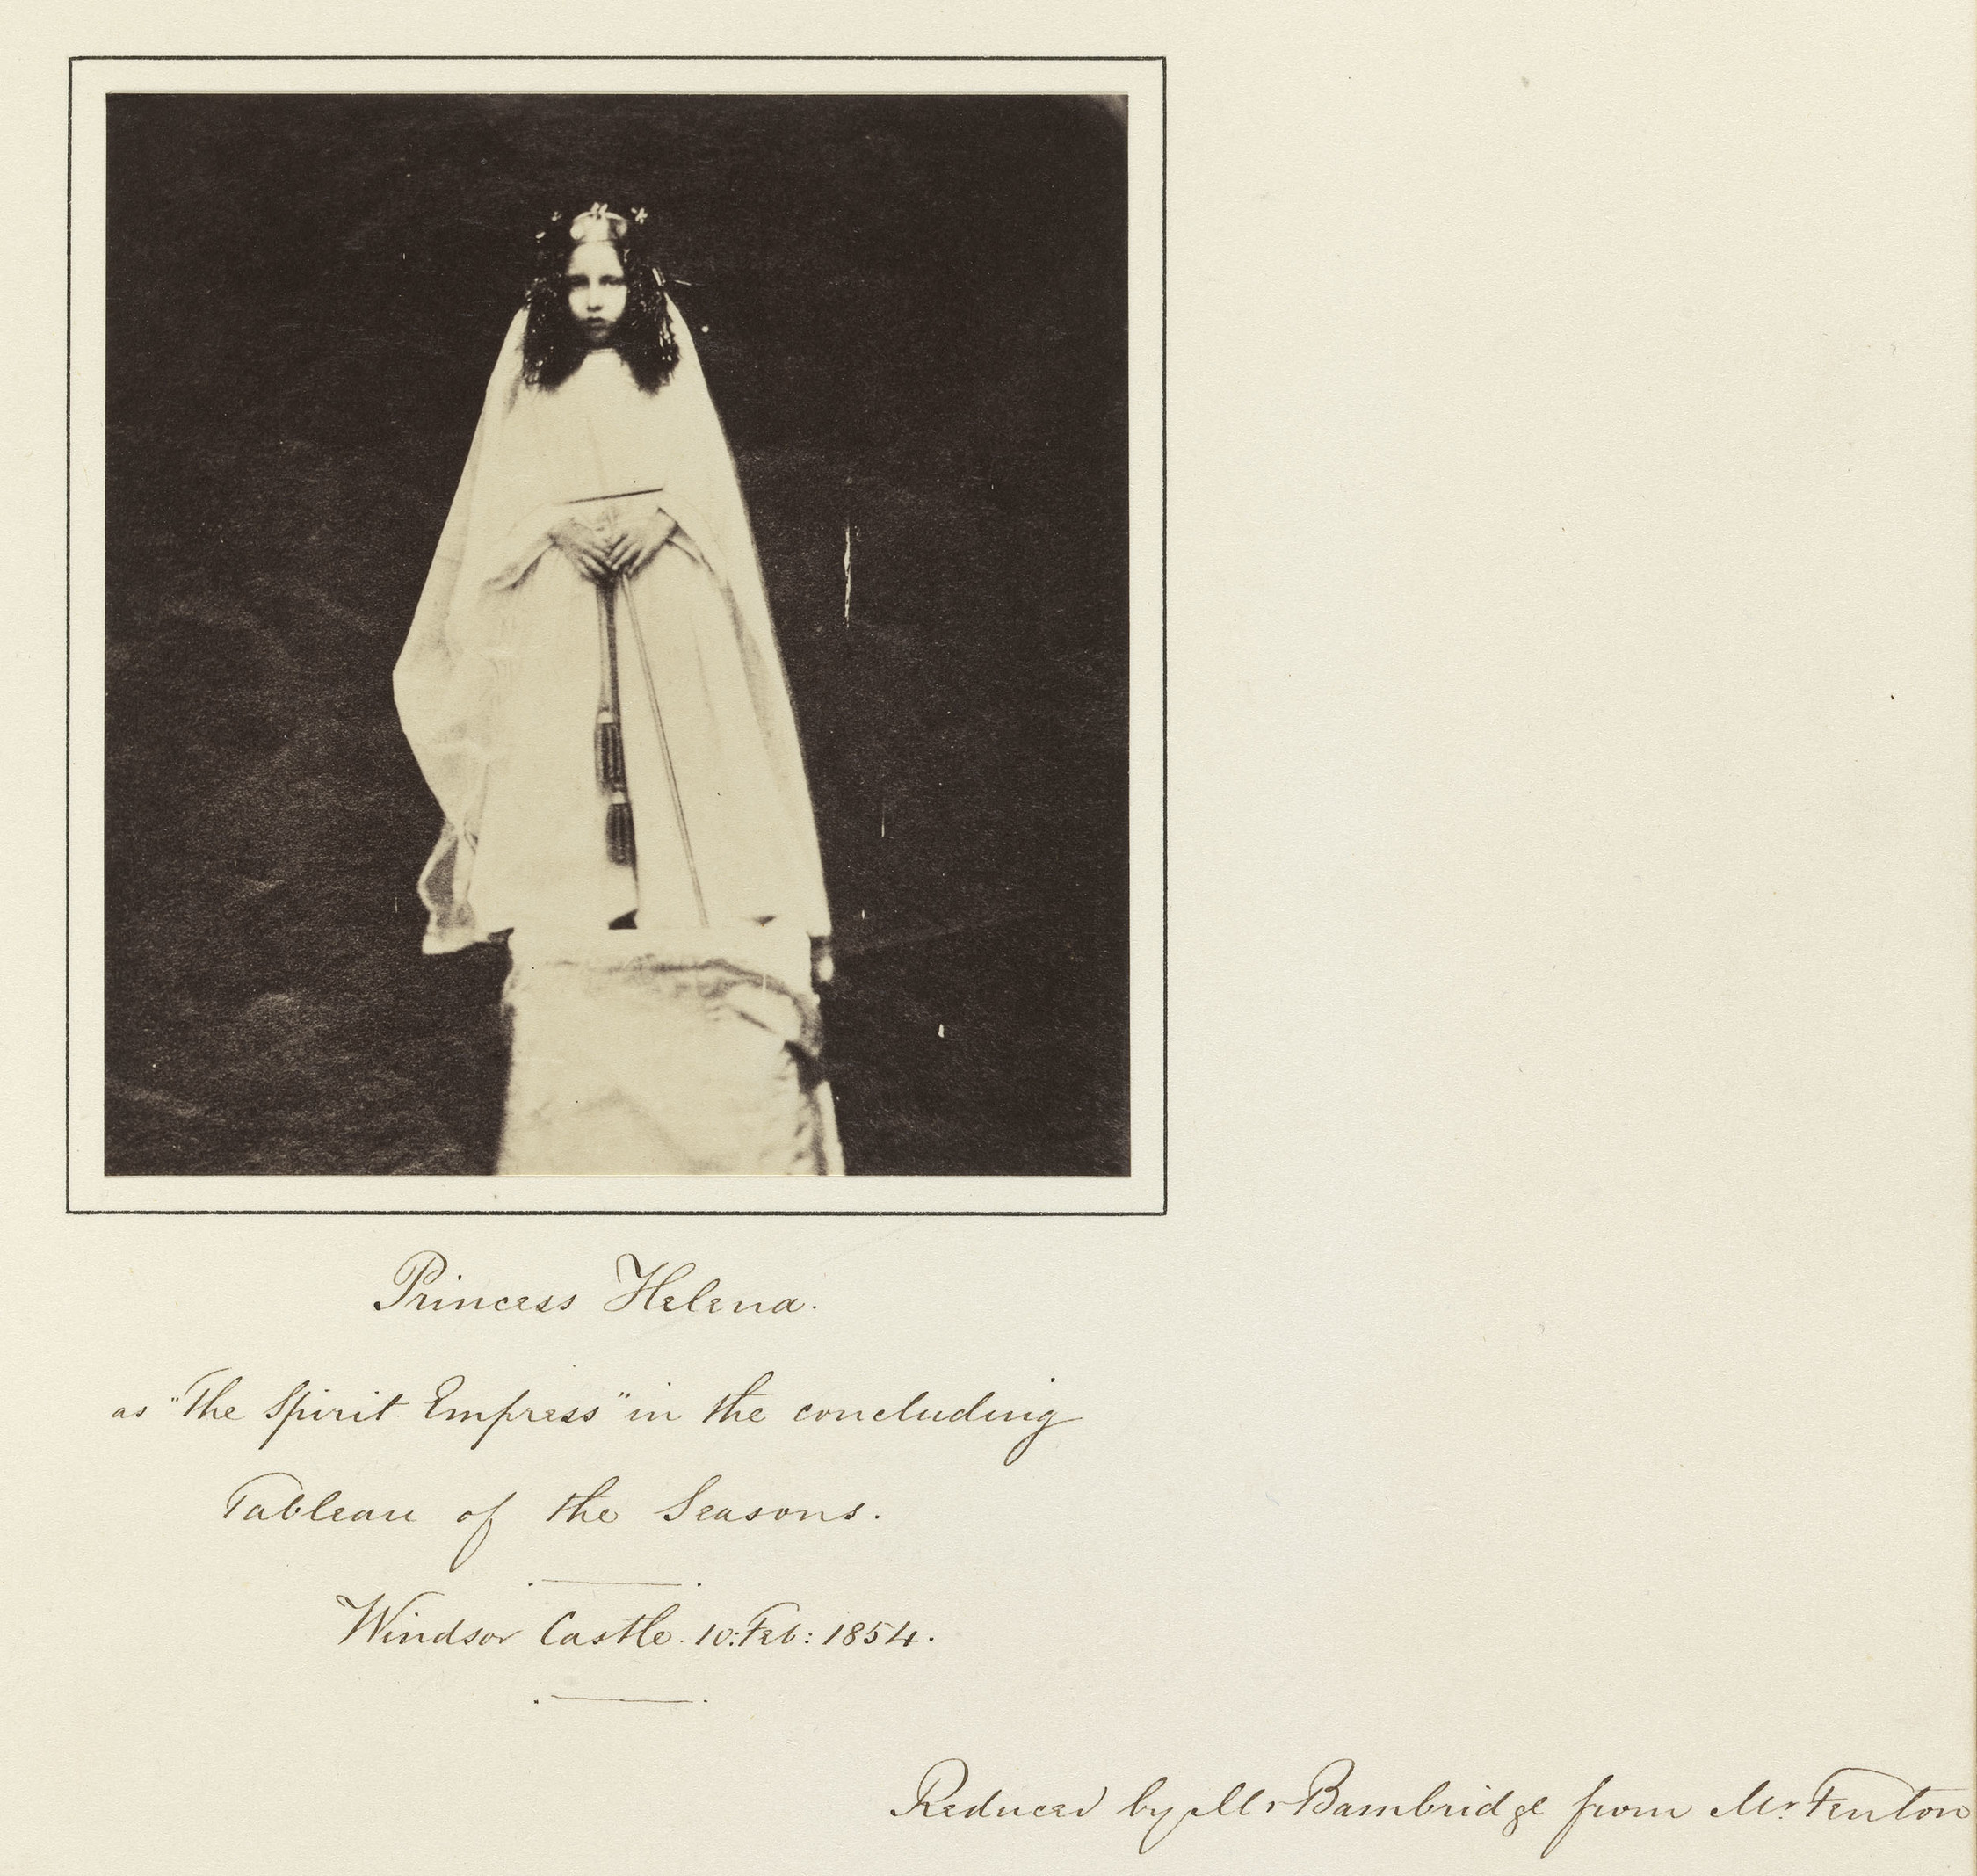 Princess Helena.
as "The Spirit Empress" in the concluding
Tableau of the Seasons.
Windsor Castle. 10: Feb: 1854.
Reduced by Mr Bambridge from Mr. Fenton